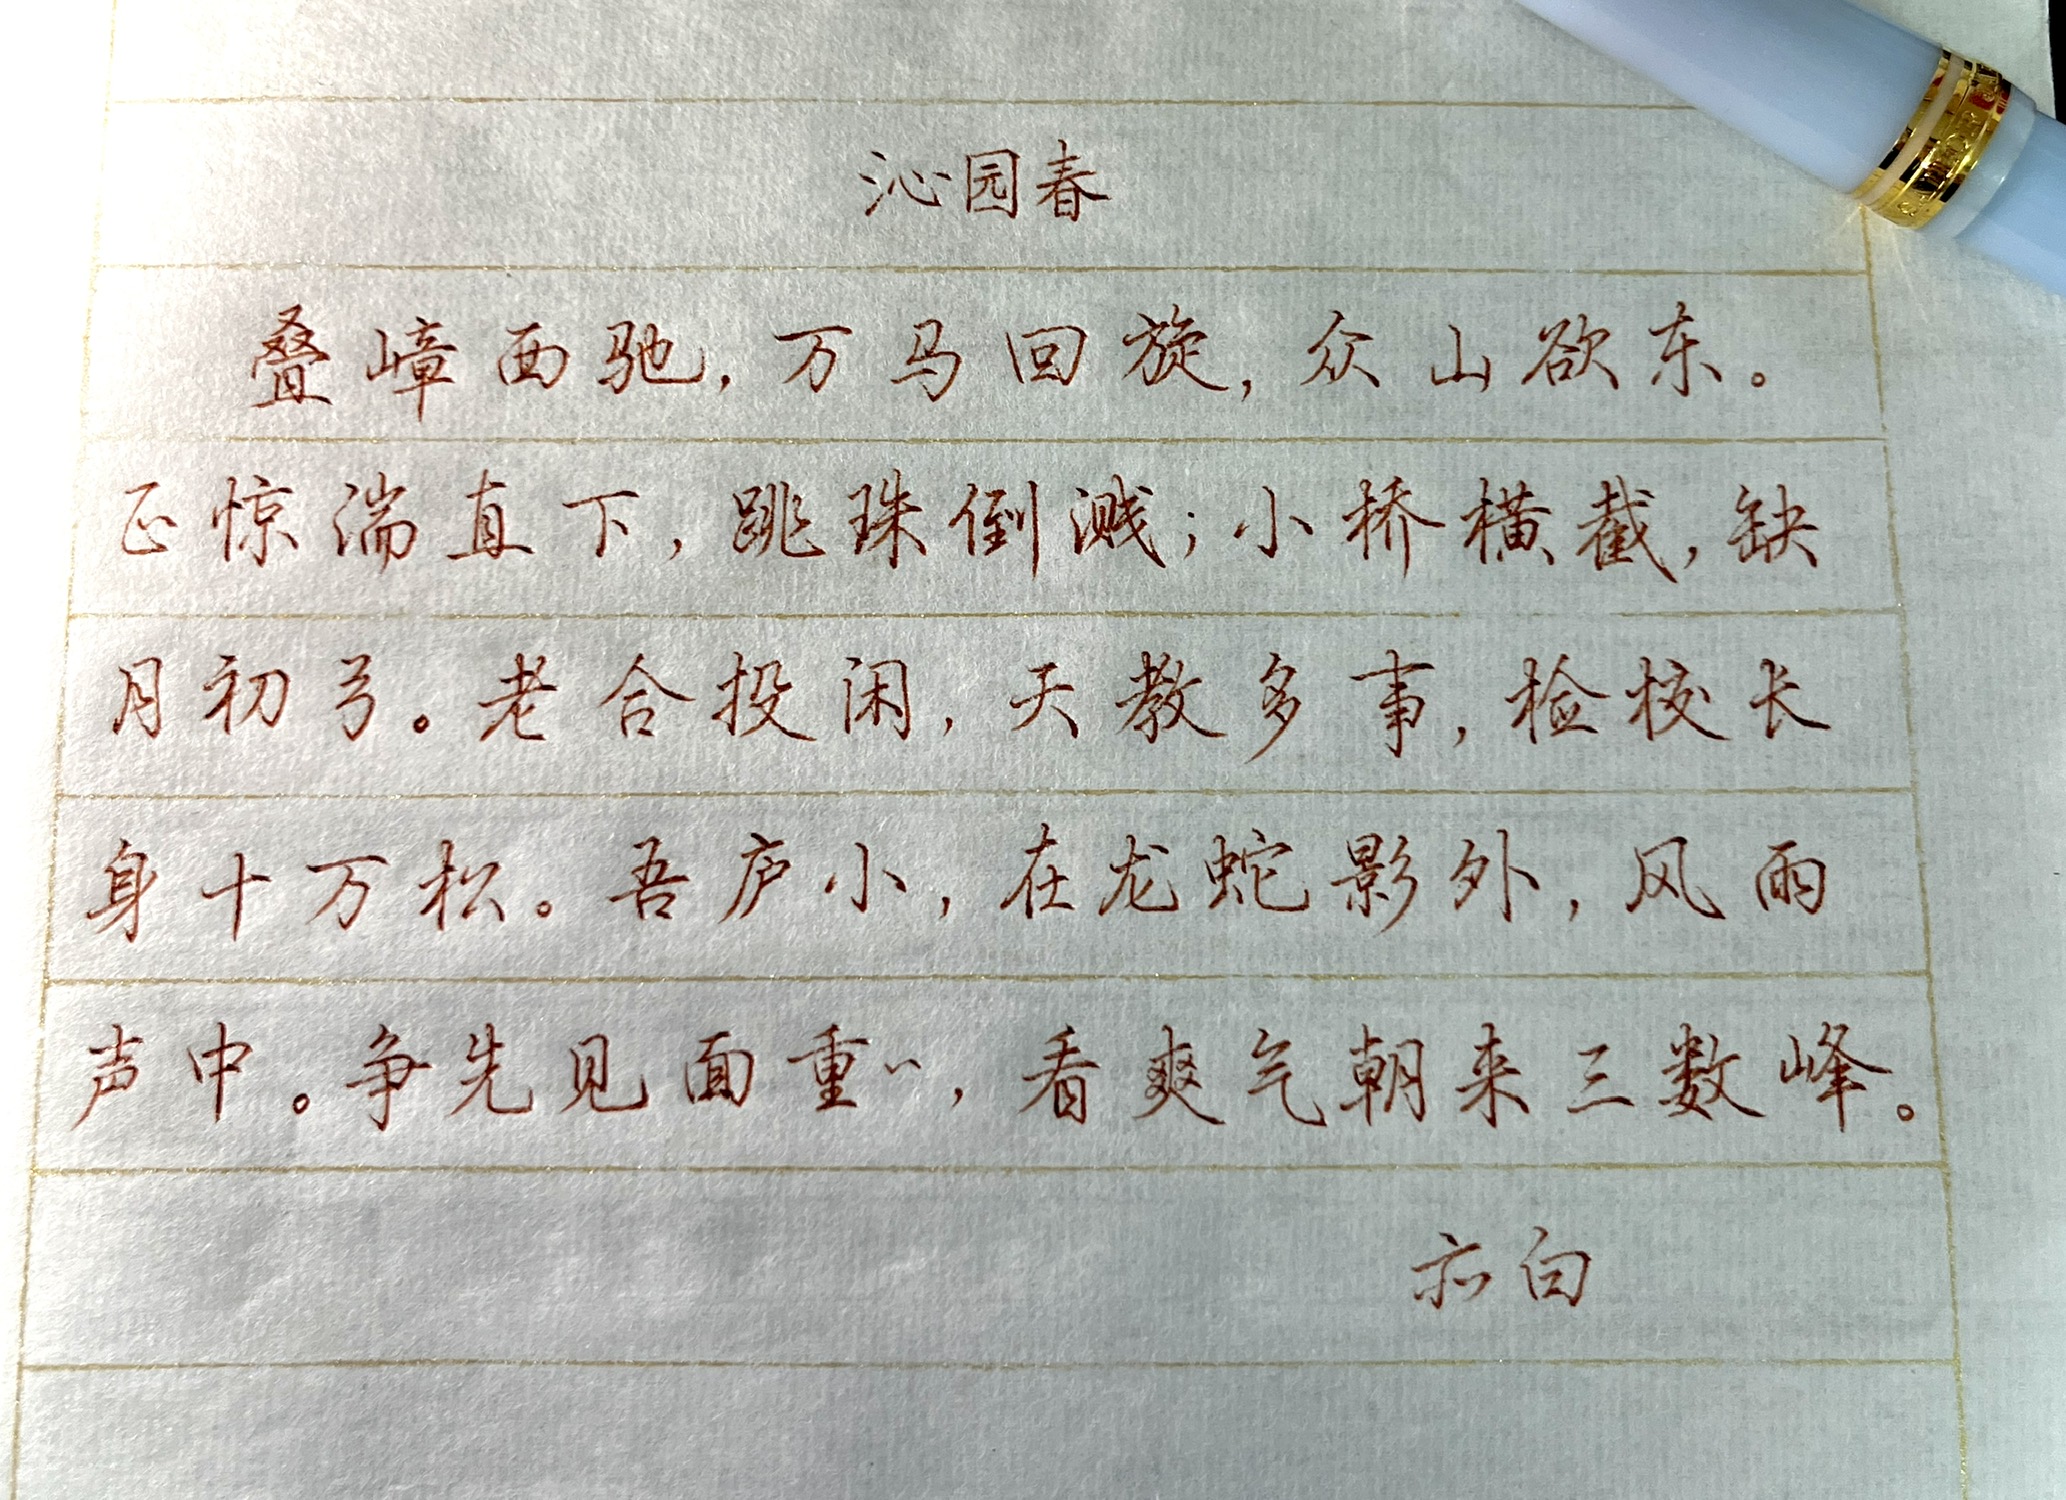 沁园春
叠嶂西驰，万马回旋，众山欲东。
正惊湍直下，跳珠倒溅；小桥横截，缺
月初弓。老合投闲，天教多事，检校长
身十万松。吾庐小，在龙蛇影外，风雨
声中。争先见面重〻，看爽气朝来三数峰。
白